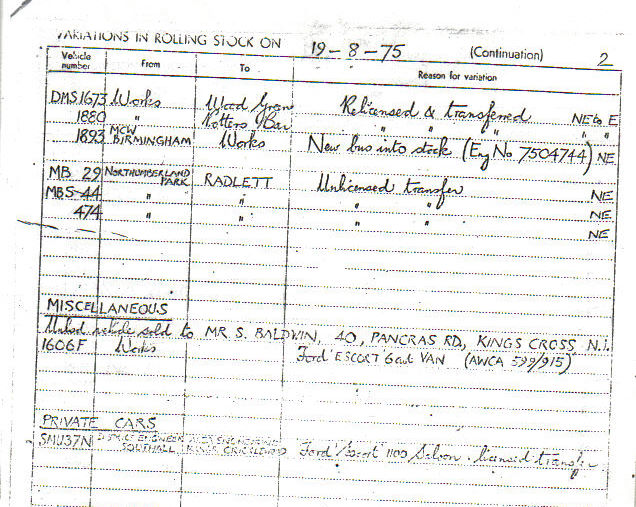 VARIATIONS IN ROLLING STOCK ON 19-8-75 (Continuation) 2
Vehicle number From To Reason for variation
DMS1673 Works Wood Green Relicensed & transferred NE to E
1880 " Potters Bar " " " "
1893 MCW BIRMINGHAM Works New bus into stock (Eng No 7504744) NE
MB 29 NORTHUMBERLAND PARK RADLETT Unlicensed transfer NE
MBS 44 " " " " NE
474 " " " " NE
MISCELLANEOUS
vehicle sold to MR S. BALDWIN, 40, PANCRAS RD, KINGS CROSS N.1.
1606F Works Ford 'ESCORT' 6cwt VAN (AWCA 599/915)
PRIVATE CARS
SMU37N DISTRICT ENGINEER SOUTHALL CRICKLEWOOD Ford 'Escort' 1100 Saloon. licensed transfer